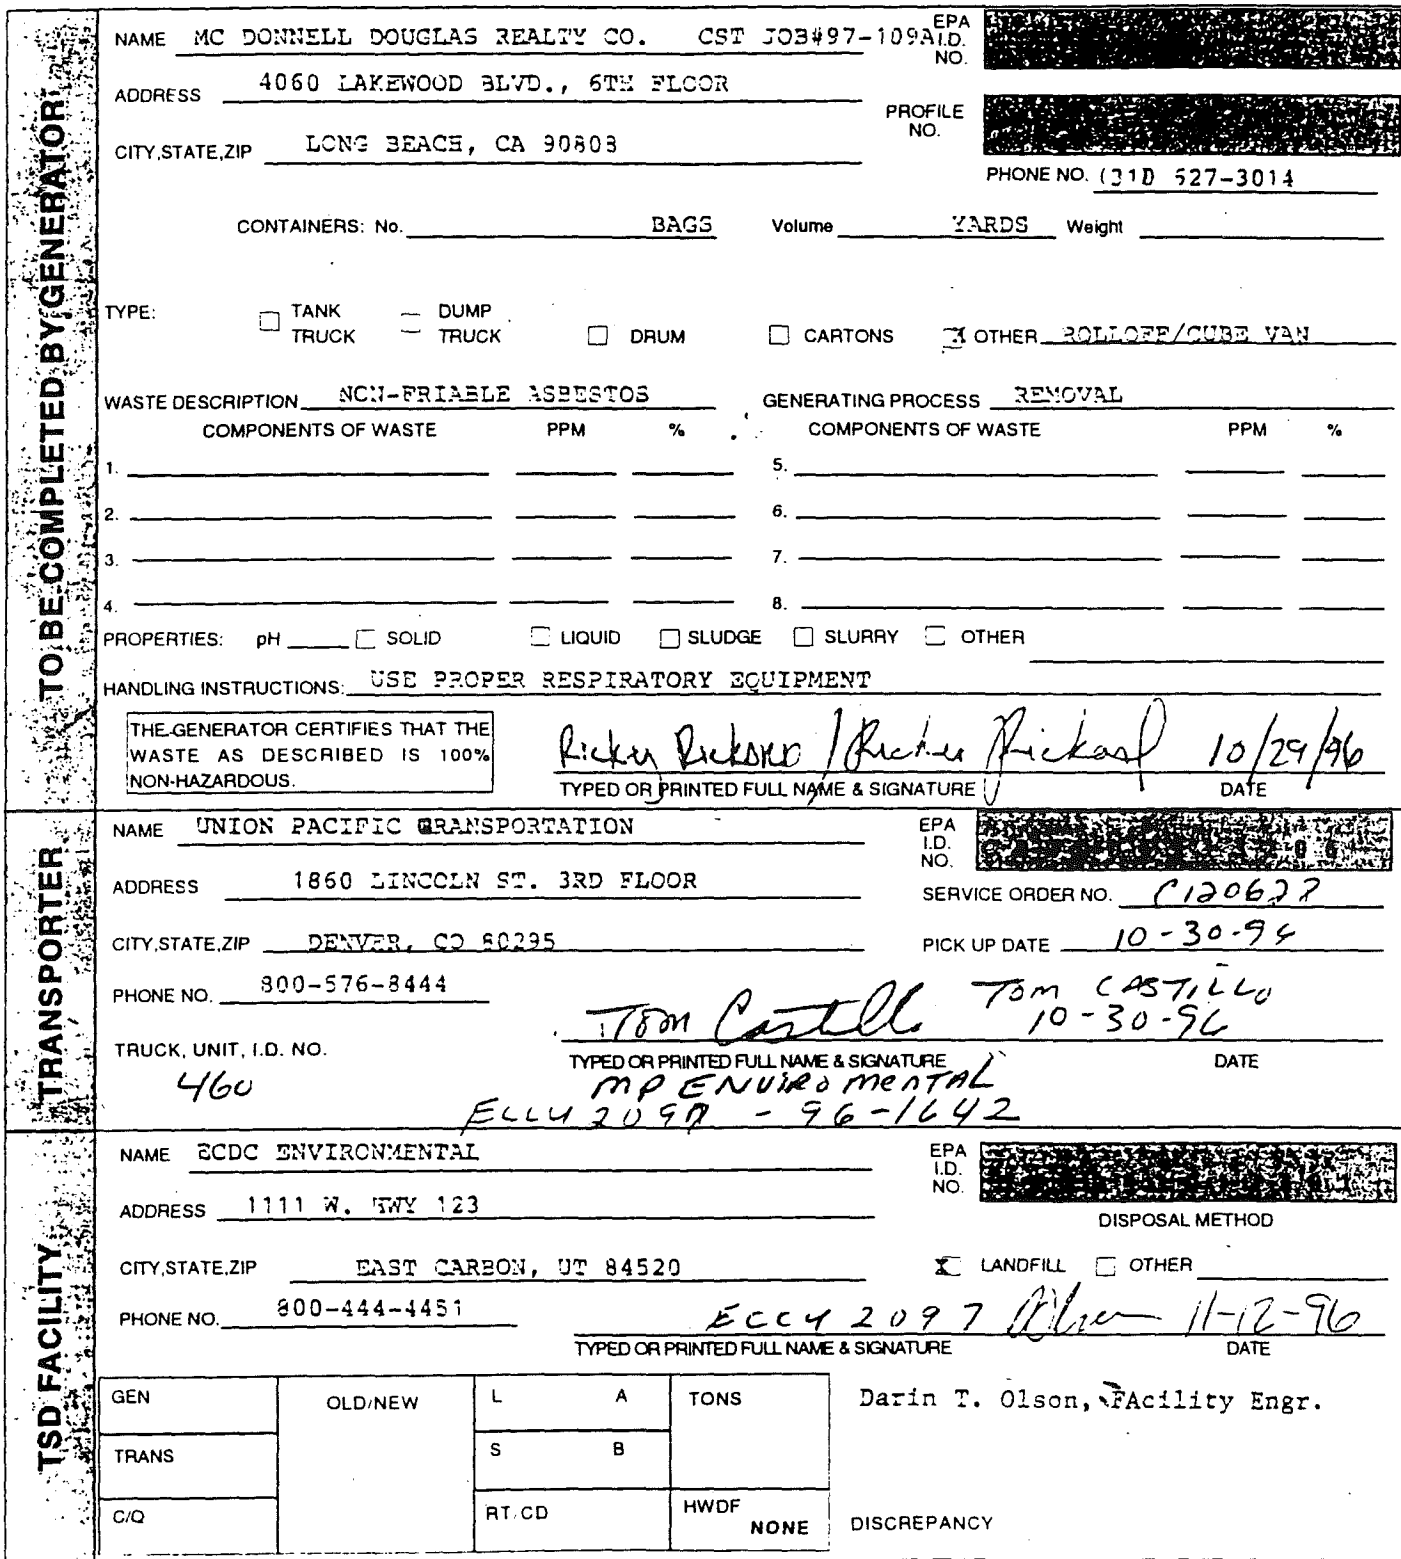 TO BE COMPLETED BY GENERATOR
NAME MC DONNELL DOUGLAS REALTY CO. CST JOB#97-109A
EPA I.D. NO.
ADDRESS 4060 LAKEWOOD BLVD., 6TH FLOOR
PROFILE NO.
CITY,STATE,ZIP LONG BEACH, CA 90808
PHONE NO. (310 627-3014
CONTAINERS: No. BAGS Volume YARDS Weight
TYPE: TANK TRUCK DUMP TRUCK DRUM CARTONS X OTHER ROLLOFF/CUBE VAN
WASTE DESCRIPTION NON-FRIABLE ASBESTOS GENERATING PROCESS REMOVAL
COMPONENTS OF WASTE PPM % COMPONENTS OF WASTE PPM %
1. 5.
2. 6.
3. 7.
4. 8.
PROPERTIES: pH SOLID LIQUID SLUDGE SLURRY OTHER
HANDLING INSTRUCTIONS: USE PROPER RESPIRATORY EQUIPMENT
THE GENERATOR CERTIFIES THAT THE
WASTE AS DESCRIBED IS 100%
NON-HAZARDOUS.
Ricky Rickard / Ricky Rickard 10/29/96
TYPED OR PRINTED FULL NAME & SIGNATURE DATE
TRANSPORTER
NAME UNION PACIFIC TRANSPORTATION
EPA I.D. NO.
ADDRESS 1860 LINCOLN ST. 3RD FLOOR
SERVICE ORDER NO.
CITY,STATE,ZIP DENVER, CO 80295
PICK UP DATE 10-30-96
PHONE NO. 800-576-8444
Tom Castillo TOM CASTILLO
10-30-96
TRUCK, UNIT, I.D. NO.
460
TYPED OR PRINTED FULL NAME & SIGNATURE DATE
MP ENVIROMENTAL
ECCU 2097 - 96-1642
TSD FACILITY
NAME ECDC ENVIRONMENTAL
EPA I.D. NO.
ADDRESS 1111 W. HWY 123
DISPOSAL METHOD
CITY,STATE,ZIP EAST CARBON, UT 84520
X LANDFILL OTHER
PHONE NO. 800-444-4451
ECCU 2097 Olson 11-12-96
TYPED OR PRINTED FULL NAME & SIGNATURE DATE
GEN OLD/NEW L A TONS
Darin T. Olson, FAcility Engr.
TRANS S B
C/Q RT/CD HWDF NONE
DISCREPANCY